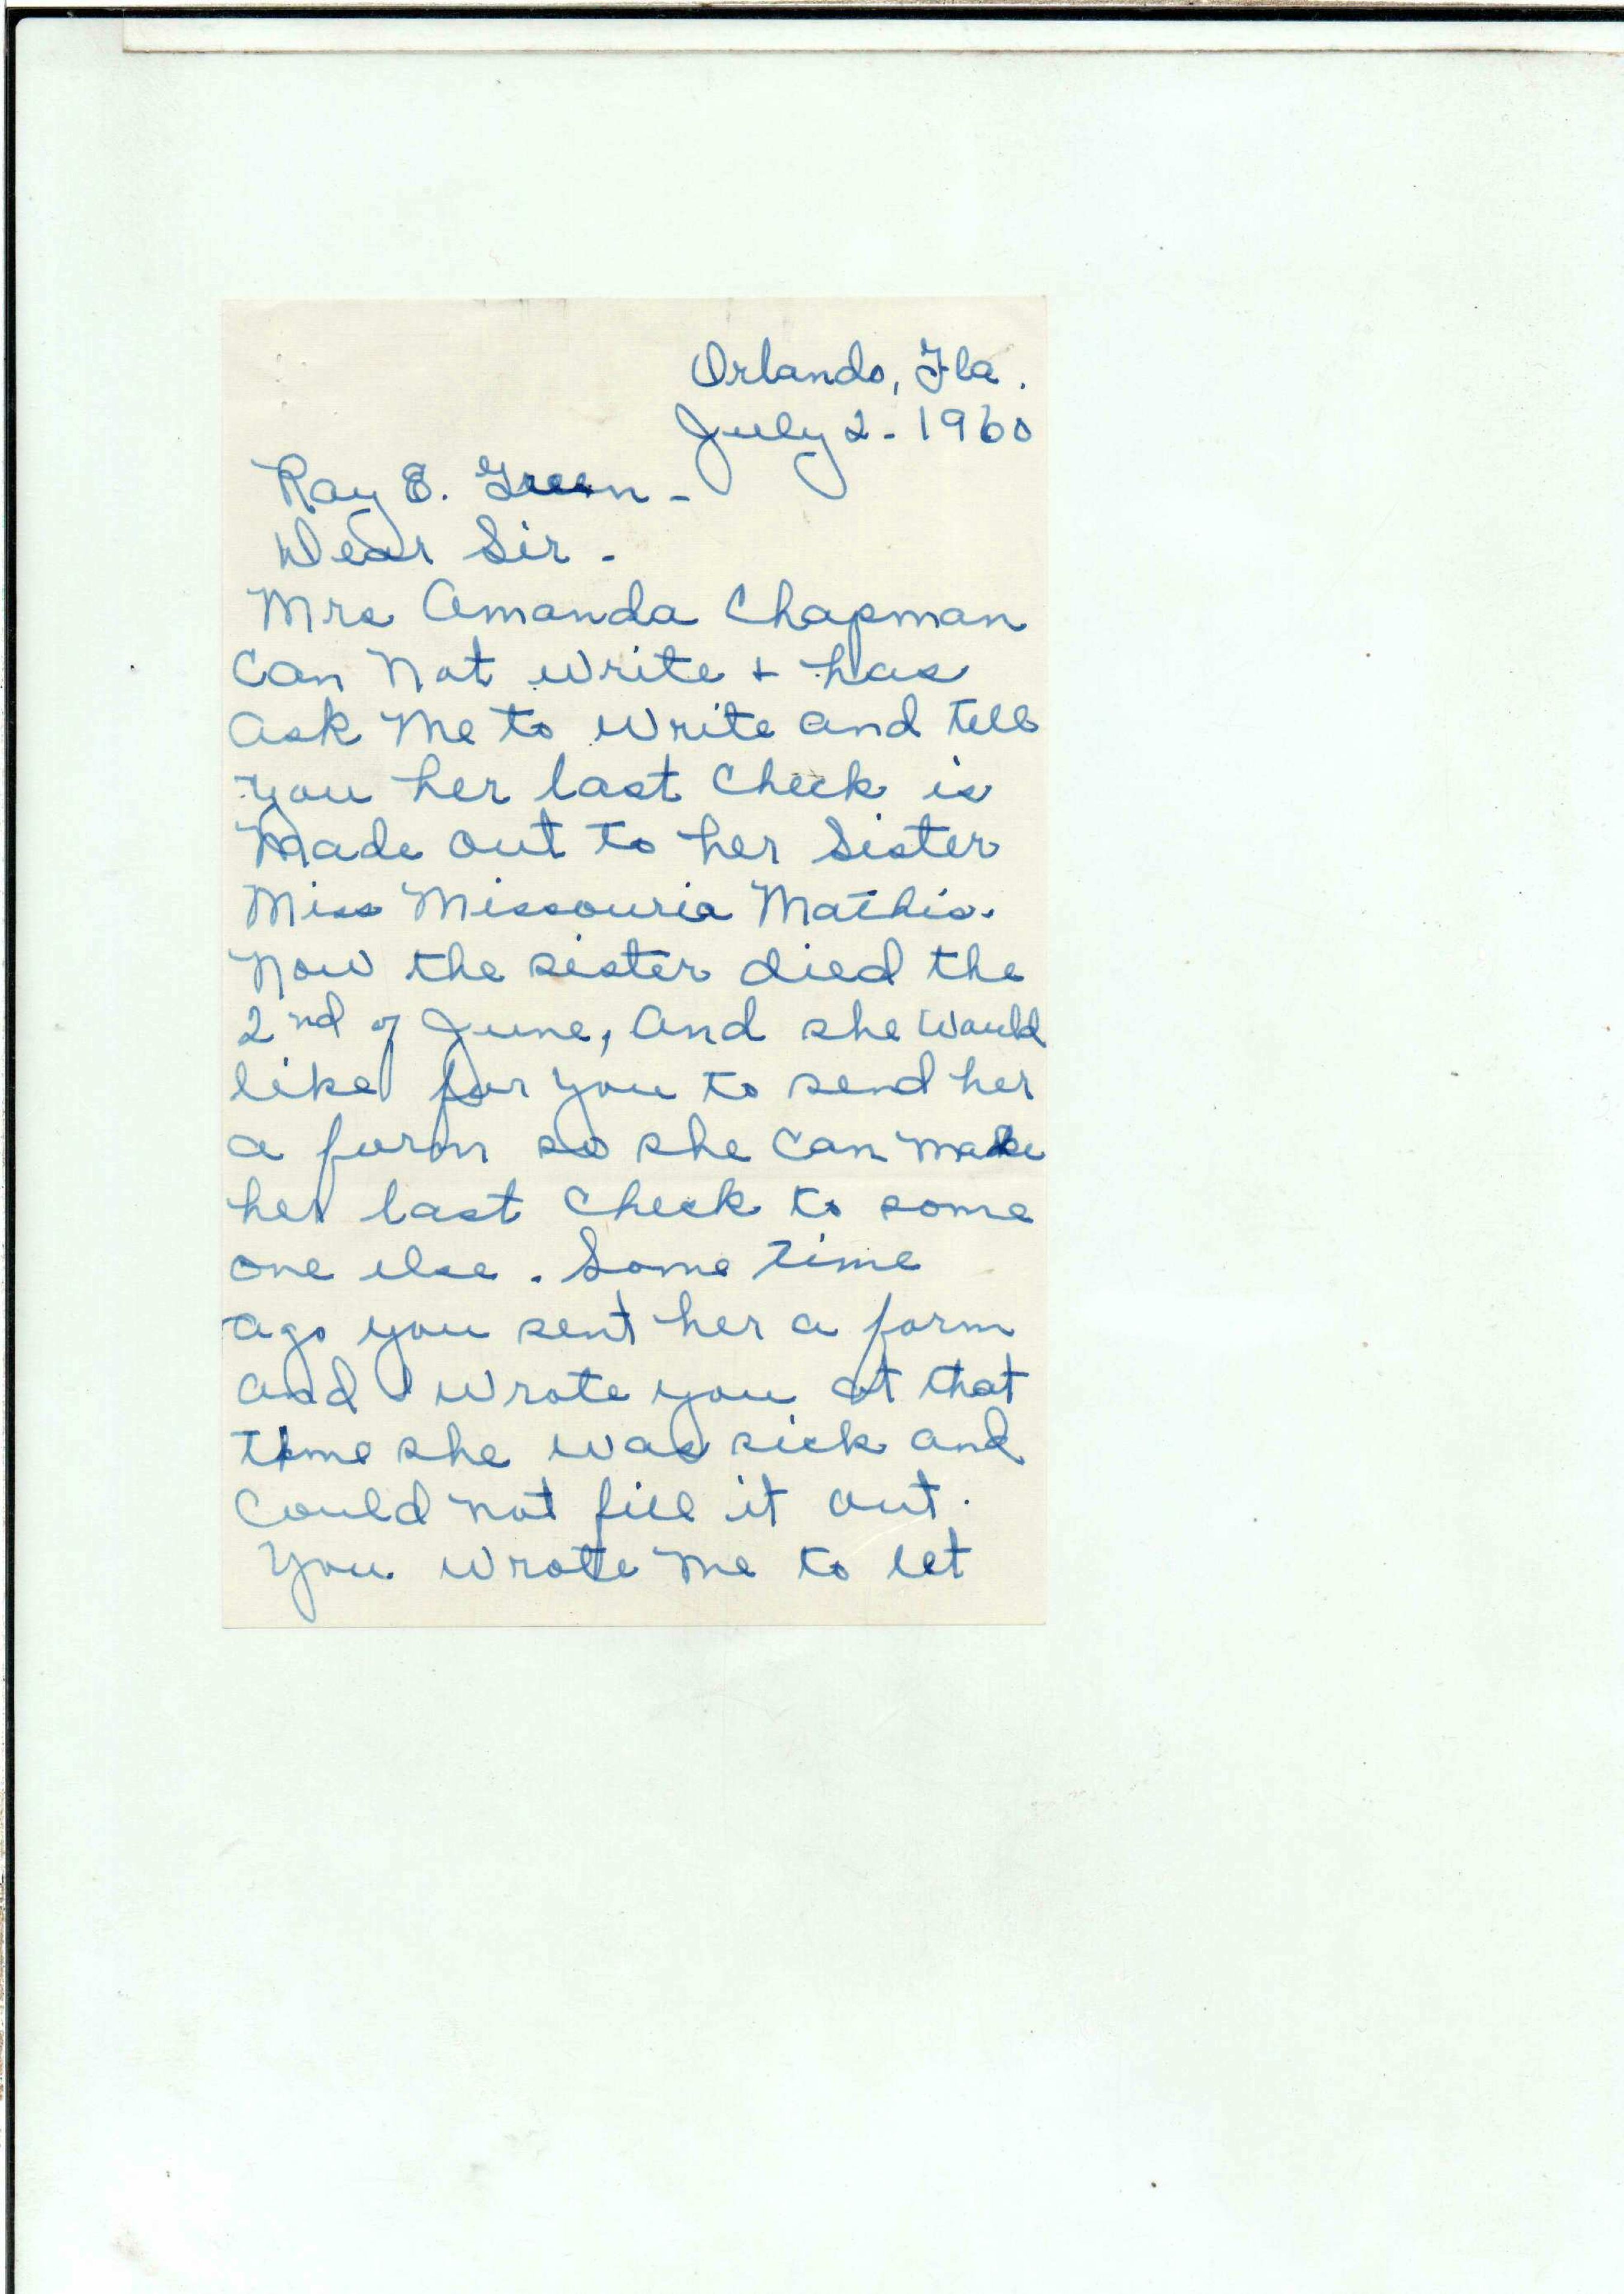 Orlando, Fla.
July 2 - 1960
Ray E. Green -
Dear Sir -
Mrs Amanda Chapman
Can Not write + has
ask Me to write and tell
you her last Check is
Made out to her Sister
Miss Missouria Mathis.
Now the sister died the
2nd of June, and she would
like for you to send her
a form so she can make
her last Check to some
one else. Some time
ago you sent her a form
and I wrote you at that
time she was sick and
Could not fill it out.
You wrote me to let